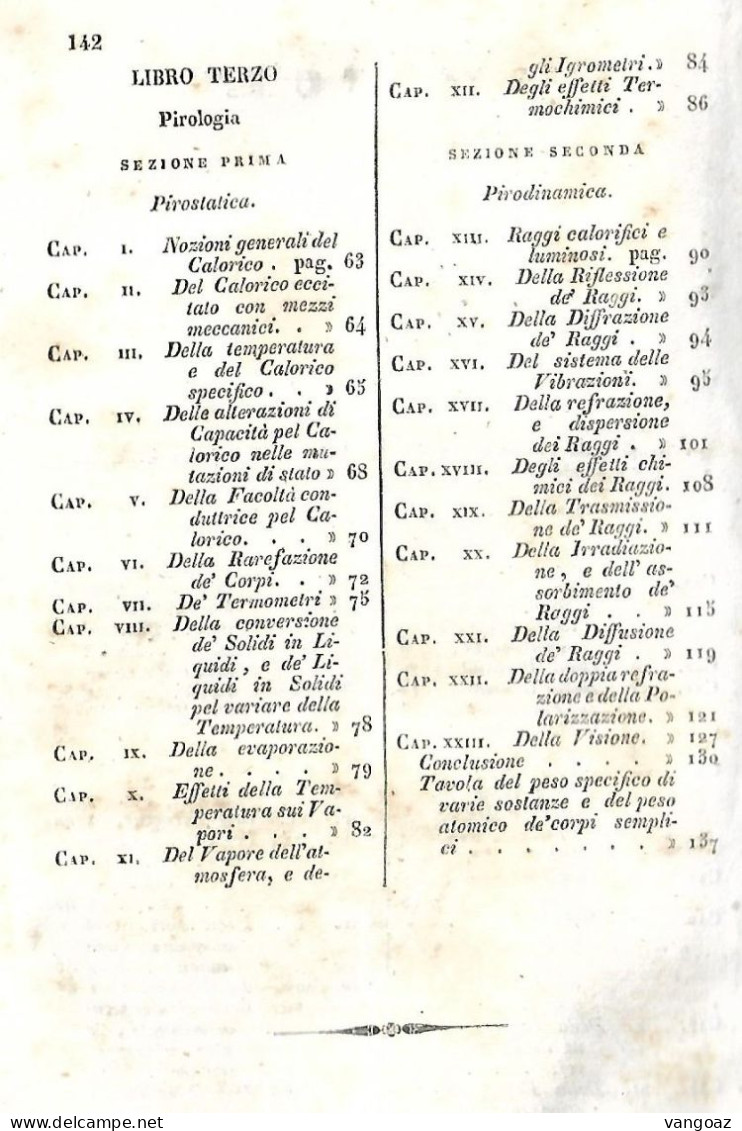 142
LIBRO TERZO
Pirologia
SEZIONE PRIMA
Pirostatica.
CAP. I. Nozioni generali del
Calorico . pag. 63
CAP. II. Del Calorico ecci-
tato con mezzi
meccanici. . » 64
CAP. III. Della temperatura
e del Calorico
specifico . . » 65
CAP. IV. Delle alterazioni di
Capacità pel Ca-
lorico nelle mu-
tazioni di stato » 68
CAP. V. Della Facoltà con-
duttrice pel Ca-
lorico. . . » 70
CAP. VI. Della Rarefazione
de' Corpi. . » 72
CAP. VII. De' Termometri » 75
CAP. VIII. Della conversione
de' Solidi in Li-
quidi, e de' Li-
quidi in Solidi
pel variare della
Temperatura. » 78
CAP. IX. Della evaporazio-
ne . . . . » 79
CAP. X. Effetti della Tem-
peratura sui Va-
pori . . . » 82
CAP. XI. Del Vapore dell'at-
mosfera, e de-
gli Igrometri . » 84
CAP. XII. Degli effetti Ter-
mochimici . » 86
SEZIONE SECONDA
Pirodinamica.
CAP. XIII. Raggi calorifici e
luminosi. pag. 90
CAP. XIV. Della Riflessione
de' Raggi. » 93
CAP. XV. Della Diffrazione
de' Raggi . » 94
CAP. XVI. Del sistema delle
Vibrazioni. » 95
CAP. XVII. Della refrazione,
e dispersione
dei Raggi . » 101
CAP. XVIII. Degli effetti chi-
mici dei Raggi. 108
CAP. XIX. Della Trasmissio-
ne de' Raggi. » 111
CAP. XX. Della Irradiazio-
ne, e dell' as-
sorbimento de'
Raggi . . » 115
CAP. XXI. Della Diffusione
de' Raggi . » 119
CAP. XXII. Della doppia refra-
zione e della Po-
larizzazione. » 121
CAP. XXIII. Della Visione. » 127
Conclusione . . . . » 130
Tavola del peso specifico di
varie sostanze e del peso
atomico de' corpi sempli-
ci . . . . . . . » 137
vangoaz